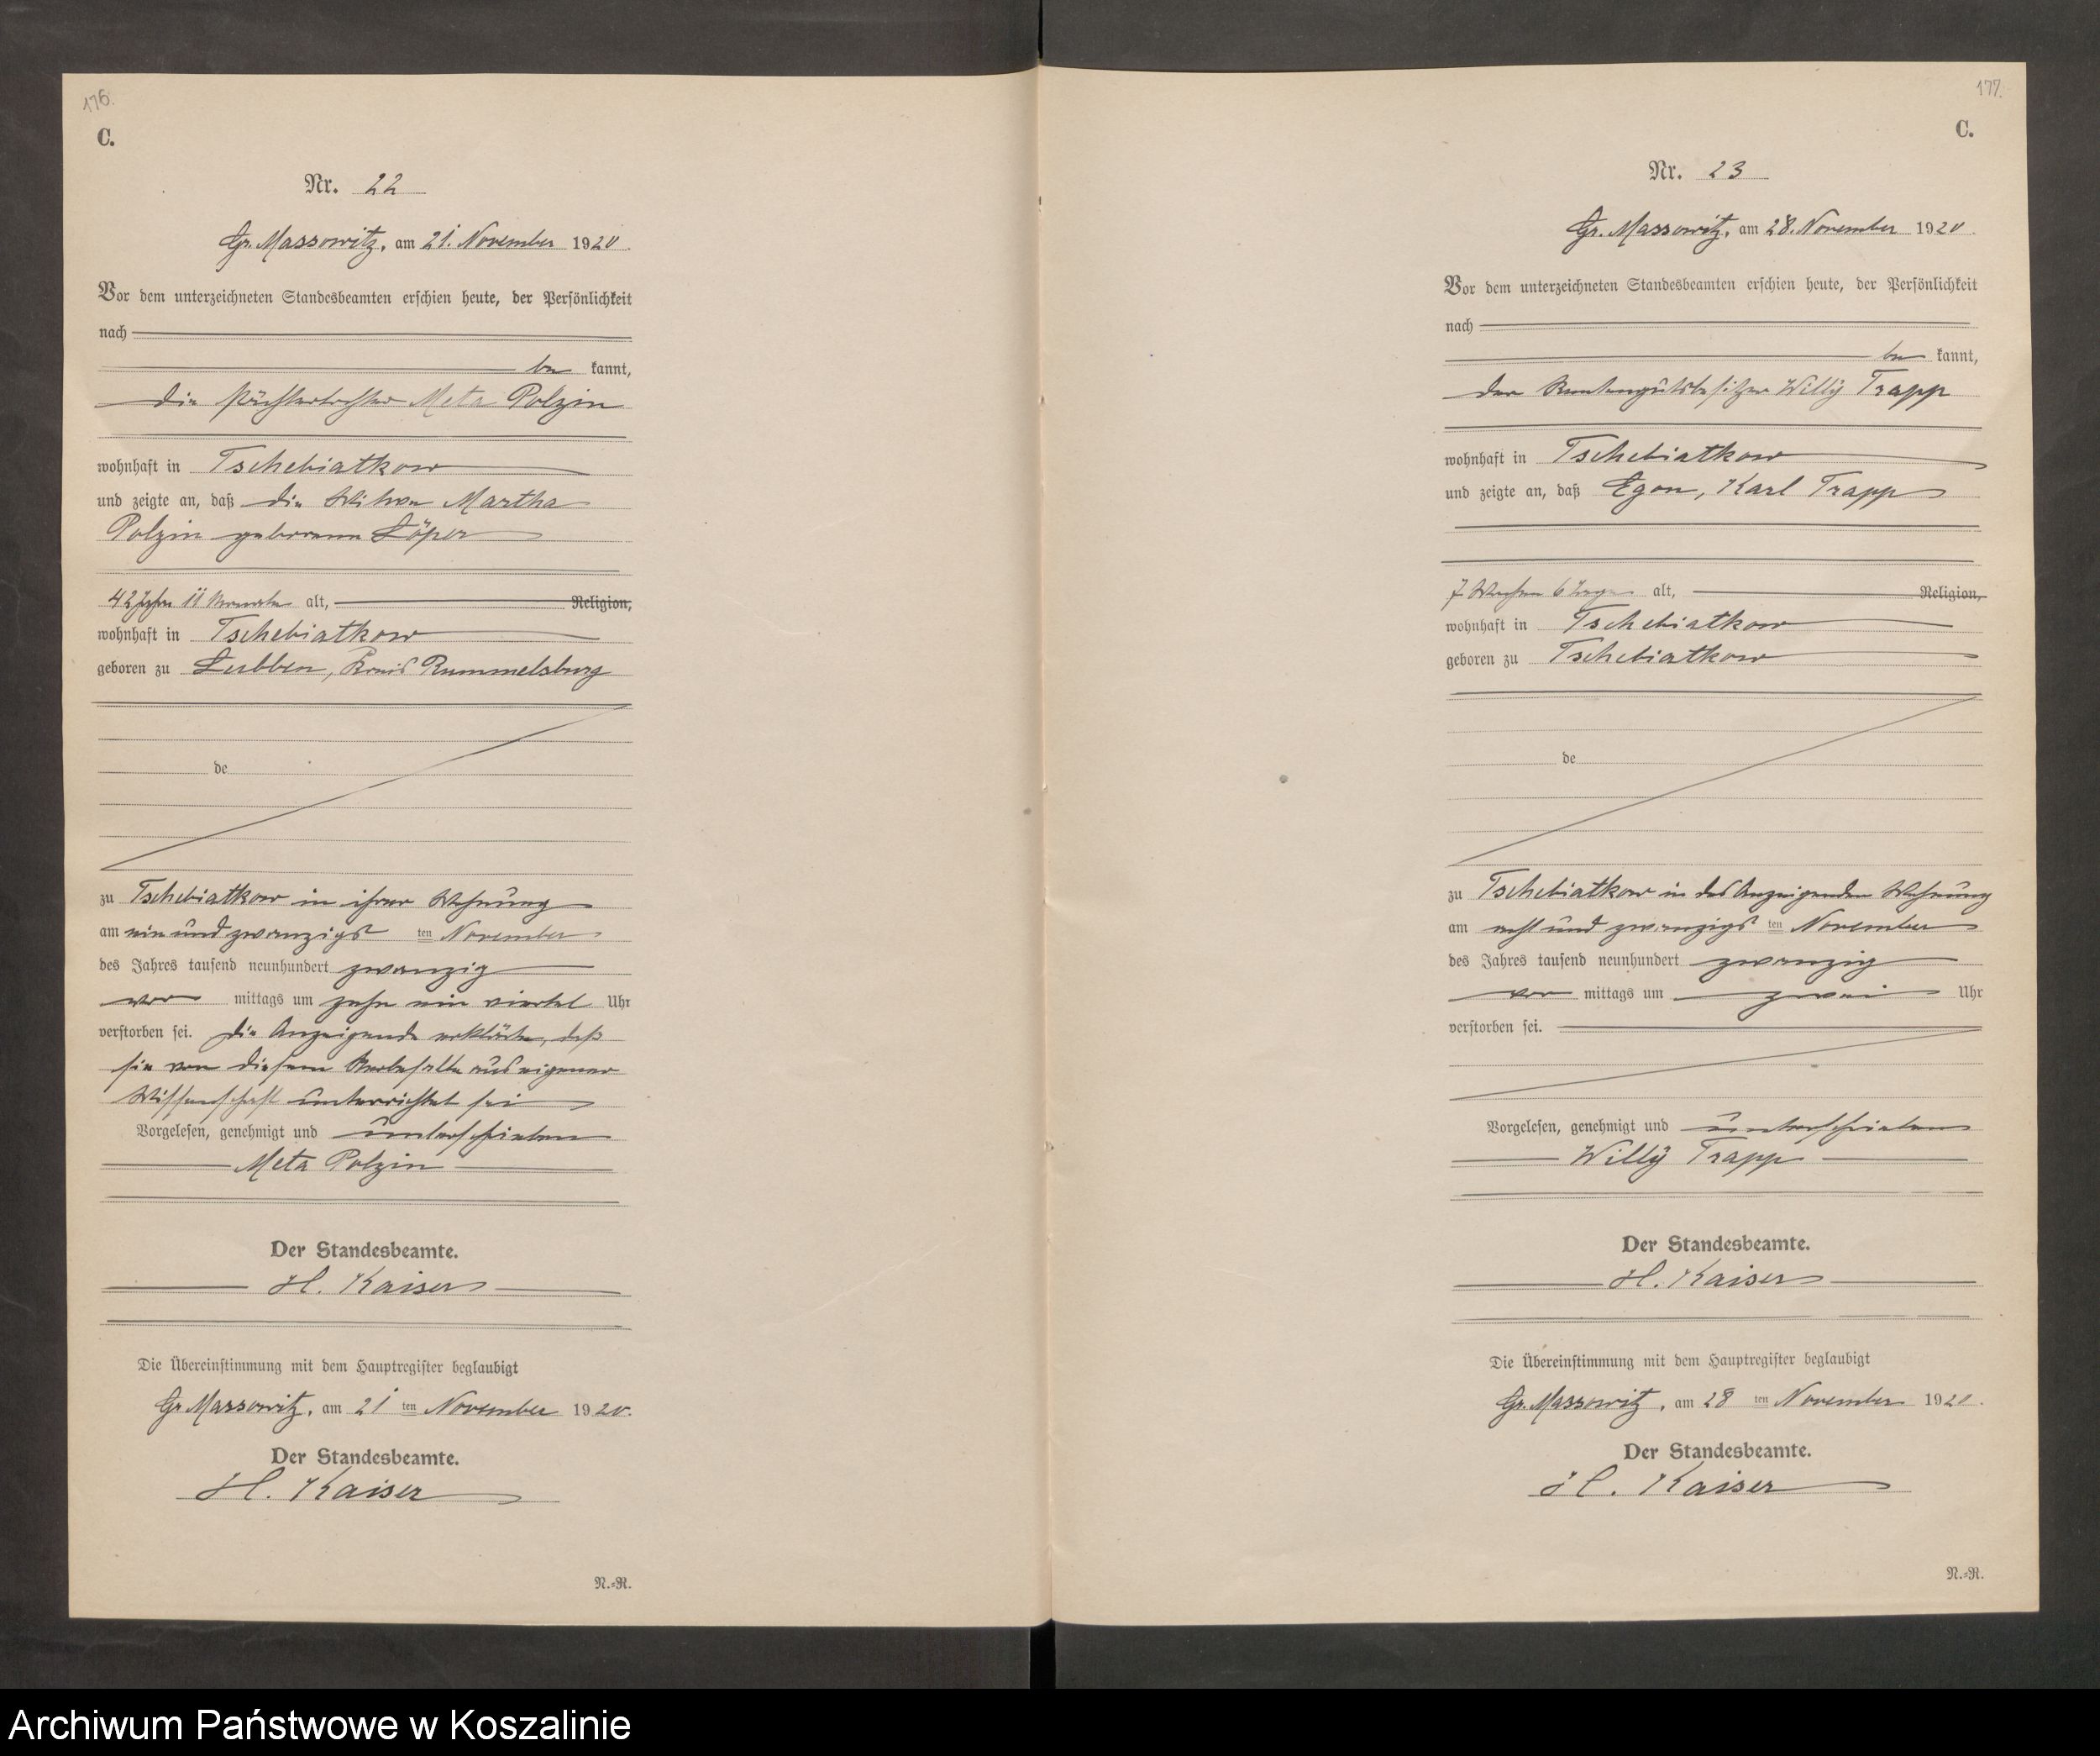 176.
C.
Nr. 22
Gr. Massowitz, am 21. November 1920.
Vor dem unterzeichneten Standesbeamten erschien heute, der Persönlichkeit
nach
be kannt,
die Pächtertochter Meta Polzin
wohnhaft in Tschebiatkow
und zeigte an, daß die Witwe Martha
Polzin geborene Löper
42 Jahre 11 Monate alt, Religion,
wohnhaft in Tschebiatkow
geboren zu Lubben, Kreis Rummelsburg
de
zu Tschebiatkow in ihrer Wohnung
am ein und zwanzigs ten November
des Jahres tausend neunhundert zwanzig
vor mittags um zehn ein viertel Uhr
verstorben sei. Die Anzeigende erklärte, daß
sie von diesem Sterbefalle aus eigener
Wissenschaft unterrichtet sei
Vorgelesen, genehmigt und unterschrieben
Meta Polzin
Der Standesbeamte.
H. Kaiser
Die Übereinstimmung mit dem Hauptregister beglaubigt
Gr. Massowitz, am 21 ten November 1920.
Der Standesbeamte.
H. Kaiser
N.=R.
177.
C.
Nr. 23
Gr. Massowitz, am 28. November 1920.
Vor dem unterzeichneten Standesbeamten erschien heute, der Persönlichkeit
nach
be kannt,
der Rentengutsbesitzer Willy Trapp
wohnhaft in Tschebiatkow
und zeigte an, daß Egon, Karl Trapp
7 Wochen 6 Tage alt, Religion,
wohnhaft in Tschebiatkow
geboren zu Tschebiatkow
de
zu Tschebiatkow in des Anzeigenden Wohnung
am acht und zwanzigs ten November
des Jahres tausend neunhundert zwanzig
vor mittags um zwei Uhr
verstorben sei.
Vorgelesen, genehmigt und unterschrieben
Willy Trapp
Der Standesbeamte.
H. Kaiser
Die Übereinstimmung mit dem Hauptregister beglaubigt
Gr. Massowitz, am 28 ten November 1920.
Der Standesbeamte.
H. Kaiser
N.=R.
Archiwum Państwowe w Koszalinie